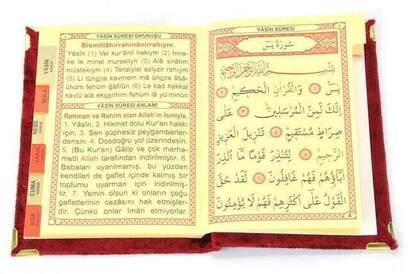 YÂSİN SÛRESİ OKUNUŞU
Bismillâhirrahmânirrahıym.
Yâsîn (1) Vel kur'ânil hakiym (2) İnne-
ke le minel murseliyn (3) Alâ sırâtım
müstekiym (4) Tenziylel aziyzir rahıym
(5) Li tünzira kavmem mâ ünzira âbâ-
ühüm fehüm ğâfilûn (6) Le kad hakkal
kavlü alâ ekserihim fehüm lâ yü'minûn
YÂSİN SÛRESİ ANLAMI
Rahman ve Rahim olan Allah'ın ismiyle.
1. Yâsîn, 2. Hikmet dolu Kur'an hakkı
için, 3. Sen şüphesiz peygamberler-
densin. 4. Dosdoğru yol üzerindesin.
5. (Bu Kur'an) Gâlip ve çok merha-
metli Allah tarafından indirilmiştir. 6.
Babaları uyarılmamış, bu yüzden
kendileri de gaflet içinde kalmış bir
toplumu uyarman için indirilmiş-
tir. 7. Yemin olsun ki onların çoğu
gafletlerinin cezâsını hak etmişler-
dir. Çünkü onlar îmân etmiyorlar.
YÂSİN SÛRESİ
سُورَةُ يٰسٓ
بِسْمِ اللّٰهِ الرَّحْمٰنِ الرَّحِيمِ
يٰسٓ ۝ وَالْقُرْاٰنِ الْحَكِيمِ ۝
اِنَّكَ لَمِنَ الْمُرْسَلِينَ ۝ عَلٰى
صِرَاطٍ مُسْتَقِيمٍ ۝ تَنْزِيلَ الْعَزِيزِ
الرَّحِيمِ ۝ لِتُنْذِرَ قَوْمًا مَٓا اُنْذِرَ
اٰبَٓاؤُهُمْ فَهُمْ غَافِلُونَ ۝ لَقَدْ حَقَّ
الْقَوْلُ عَلٰٓى اَكْثَرِهِمْ فَهُمْ لَا يُؤْمِنُونَ
4
YÂSİN
MÜLK
NEBE
CUMA